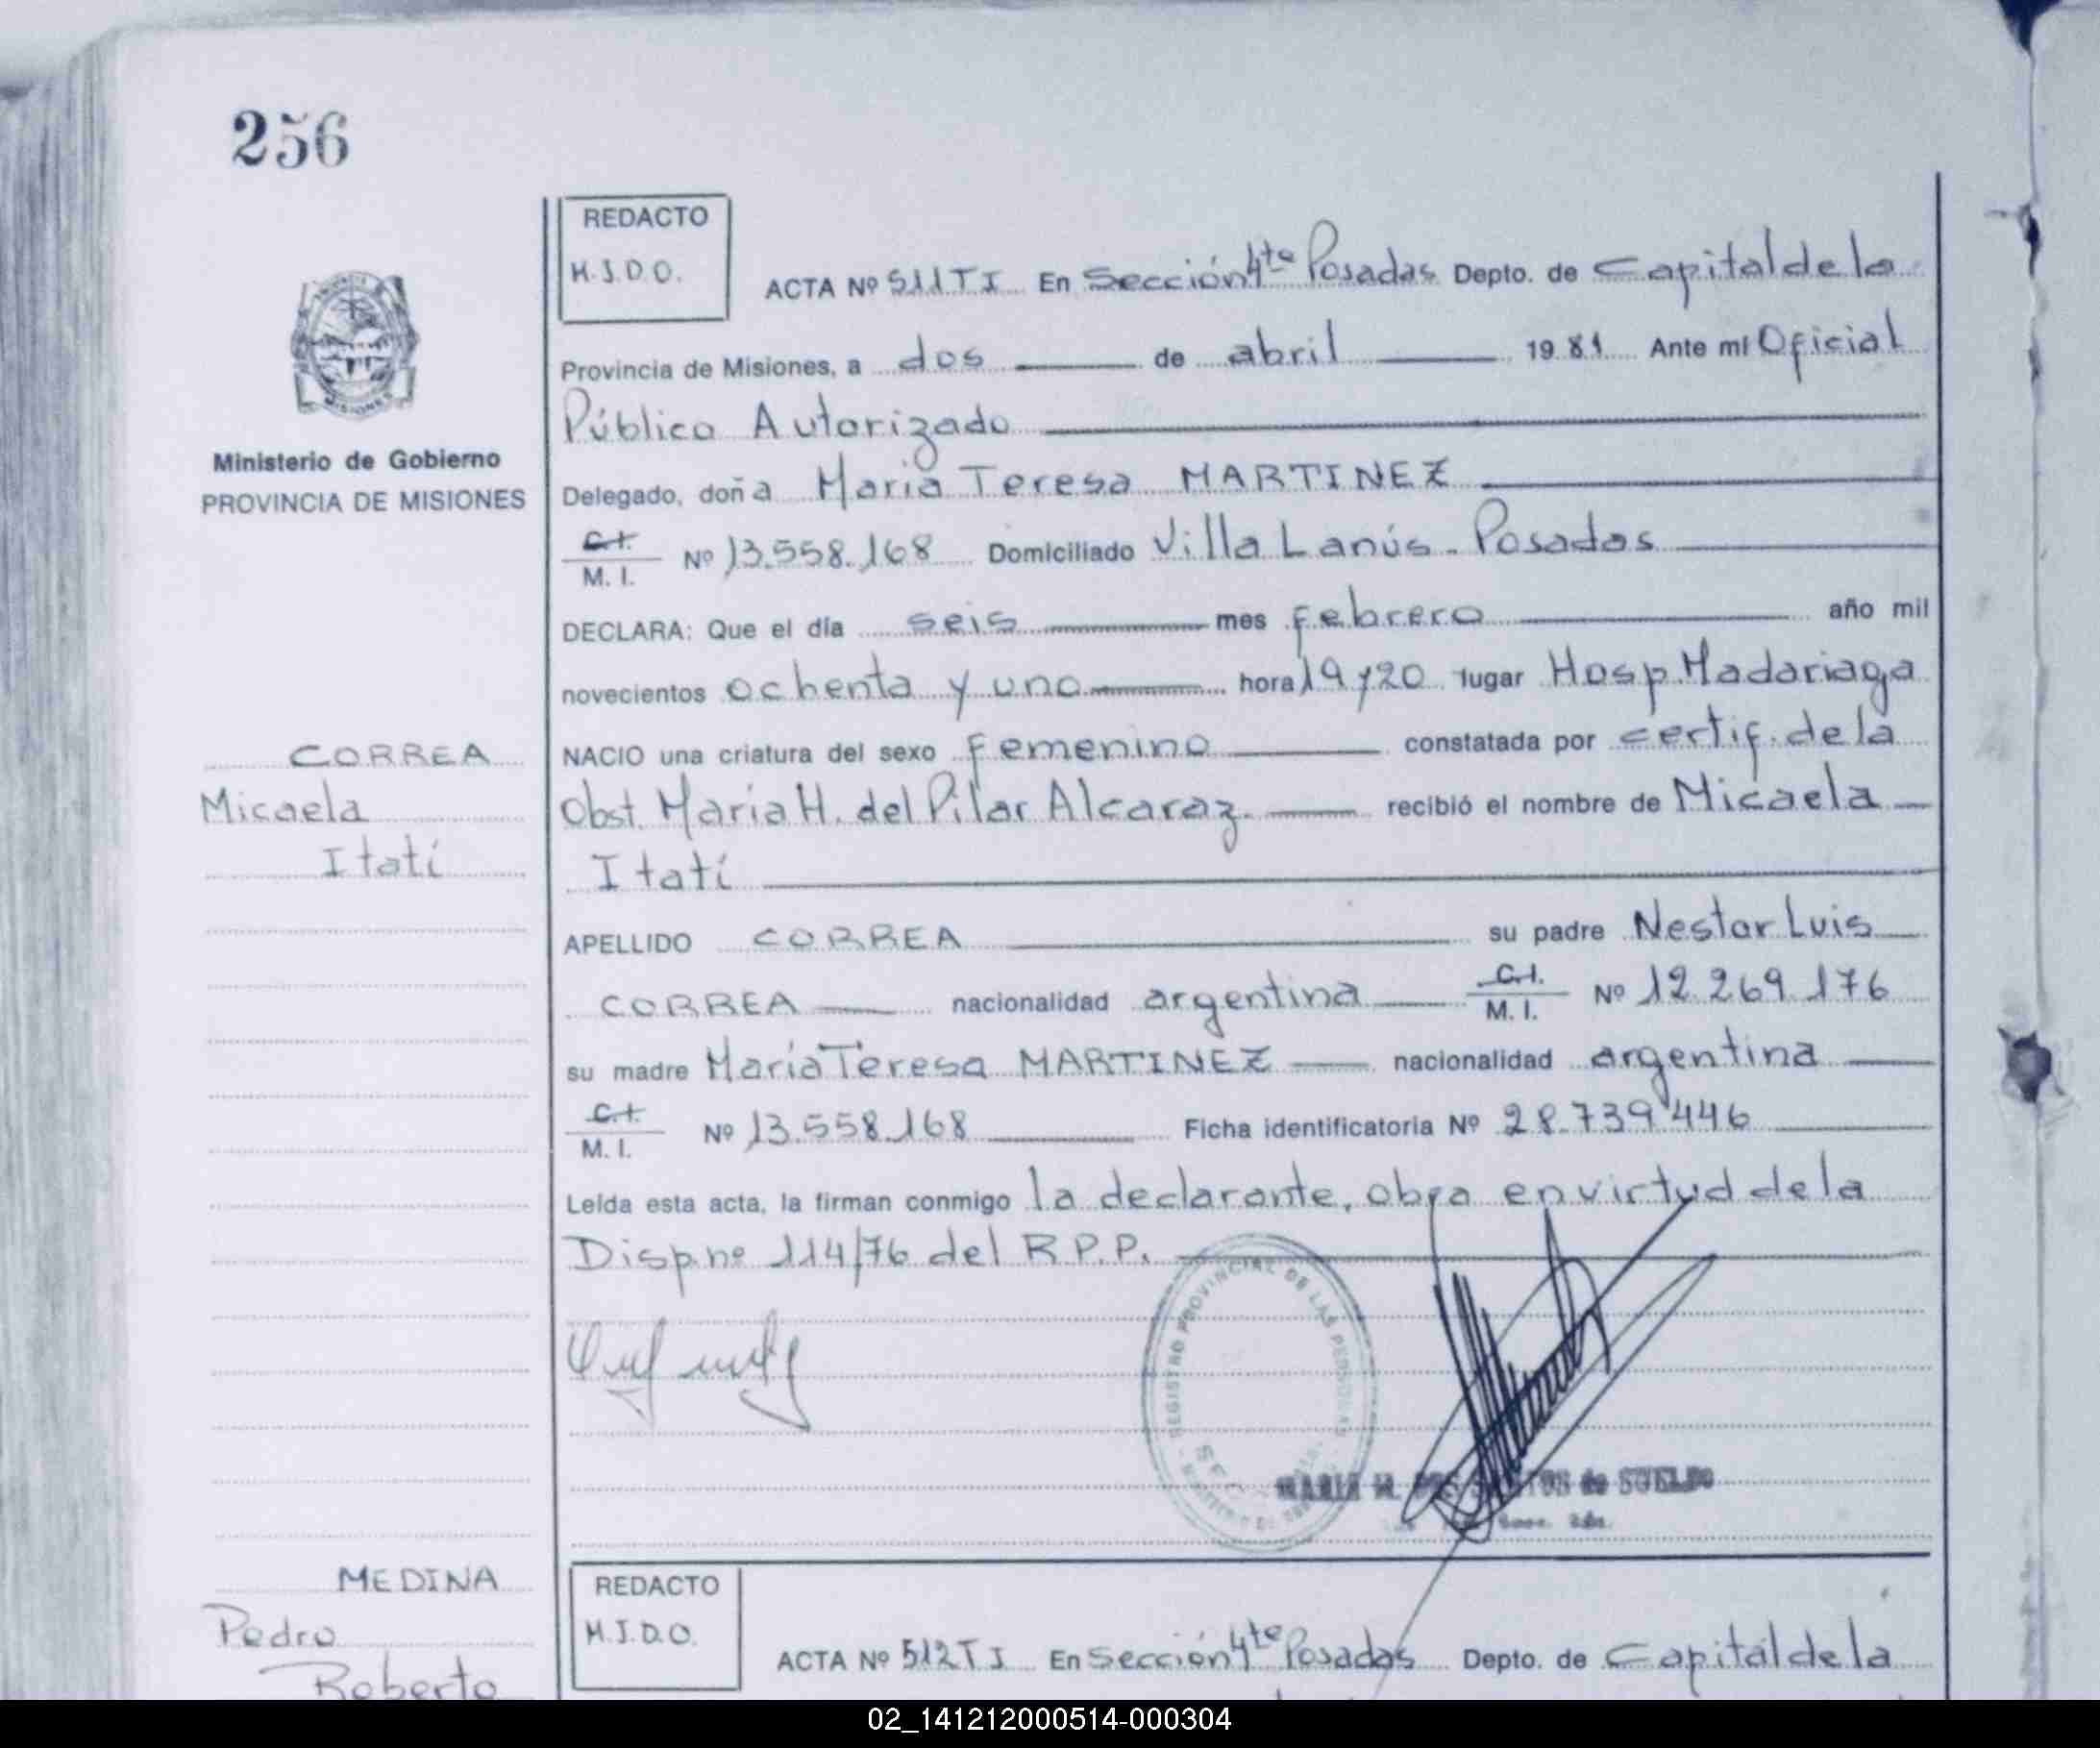 256
REDACTO
M.J.D.O.
ACTA Nº 511 T I En Sección 4ta Posadas Depto. de Capital de la
Provincia de Misiones, a dos de abril 1981 Ante mí Oficial
Público Autorizado
Ministerio de Gobierno
PROVINCIA DE MISIONES
Delegado, doña Maria Teresa MARTINEZ
C.I.
M. I. Nº 13.558.168 Domiciliado Villa Lanús - Posadas
DECLARA: Que el día seis mes febrero año mil
novecientos ochenta y uno hora 19 y 20 lugar Hosp. Madariaga
CORREA
Micaela
Itatí
NACIO una criatura del sexo femenino constatada por certif. de la
Obst. María H. del Pilar Alcaraz. recibió el nombre de Micaela
Itatí
APELLIDO CORREA su padre Nestor Luis
CORREA nacionalidad argentina C.I. M. I. Nº 12.269.176
su madre María Teresa MARTINEZ nacionalidad argentina
C.I.
M. I. Nº 13.558.168 Ficha identificatoria Nº 28.739.446
Leída esta acta, la firman conmigo la declarante, obra en virtud de la
Disp. nº 114/76 del R.P.P.
REGISTRO PROVINCIAL DE LAS PERSONAS
MARIA M. DOS SANTOS de SUELDO
MEDINA
Pedro
Roberto
REDACTO
M.J.D.O.
ACTA Nº 512 T I En Sección 4ta Posadas Depto. de Capital de la
02_141212000514-000304